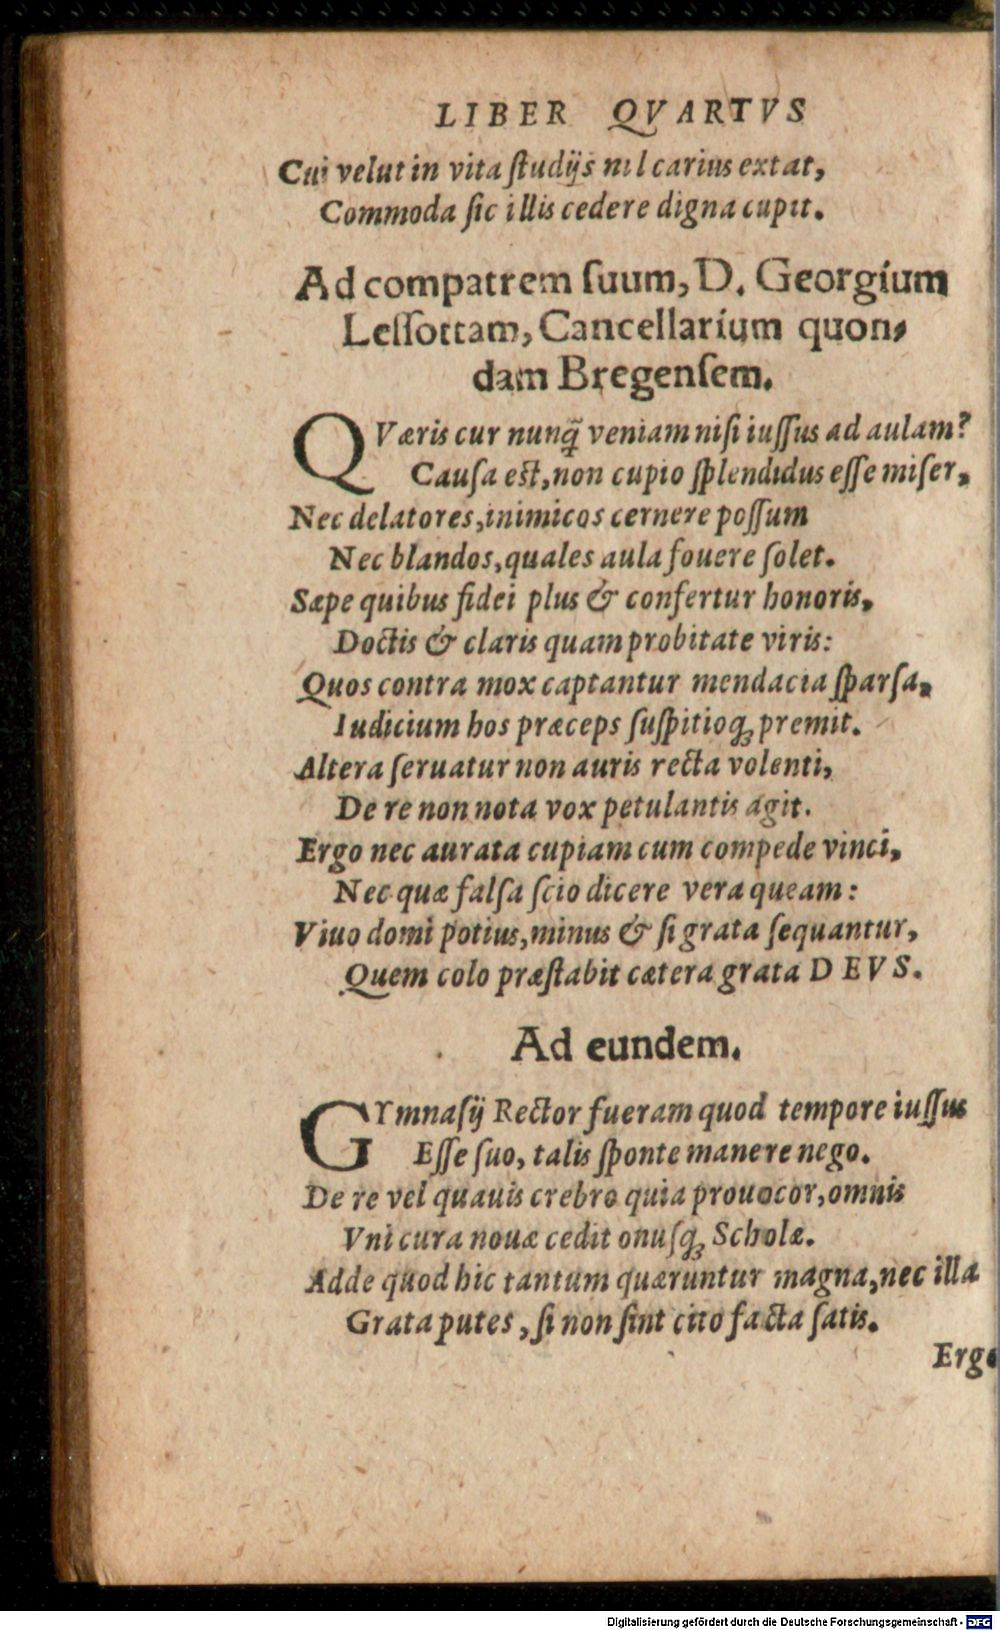 LIBER QVARTVS
Cui velut in vita ſtudijs nil carius extat,
Commoda ſic illis cedere digna cupit.
Ad compatrem ſuum, D. Georgium
Leſſottam, Cancellarium quon-
dam Bregenſem.
QVæris cur nunq̃ veniam niſi iuſſus ad aulam?
Cauſa eſt, non cupio ſplendidus eſſe miſer,
Nec delatores, inimicos cernere poſſum
Nec blandos, quales aula fouere ſolet.
Sæpe quibus fidei plus & confertur honoris,
Doctis & claris quam probitate viris:
Quos contra mox captantur mendacia ſparſa,
Iudicium hos præceps ſuſpitioq; premit.
Altera ſeruatur non auris recta volenti,
De re non nota vox petulantis agit.
Ergo nec aurata cupiam cum compede vinci,
Nec quæ falſa ſcio dicere vera queam:
Viuo domi potius, minus & ſi grata ſequantur,
Quem colo præſtabit cætera grata DEVS.
Ad eundem.
GYmnaſij Rector fueram quod tempore iuſſus
Eſſe ſuo, talis ſponte manere nego.
De re vel quauis crebro quia prouocor, omnis
Vni cura nouæ cedit onuſq; Scholæ.
Adde quod hic tantum quæruntur magna, nec illa
Grata putes, ſi non ſint cito facta ſatis.
Ergo
Digitalisierung gefördert durch die Deutsche Forschungsgemeinschaft - DFG